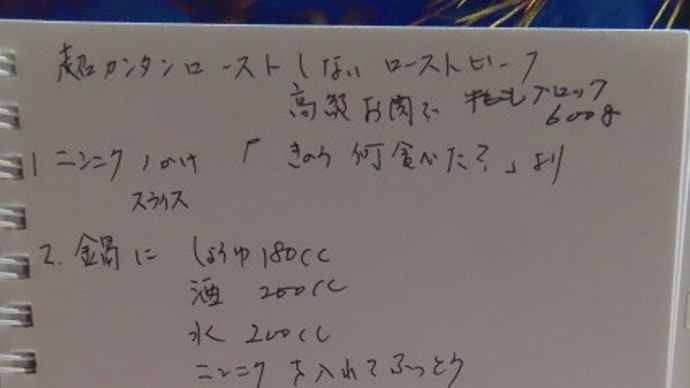 超カンタンローストしないローストビーフ
高級お肉で 牛ももブロック
600g
1 ニンニク1かけ 「きのう何食べた?」より
スライス
2. 鍋に しょうゆ180cc
酒 200cc
水 200cc
ニンニクを入れてふっとう